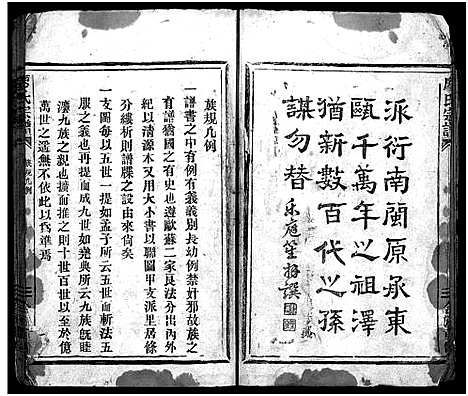 派衍南閩原承東
甌千萬年之祖澤
猶新數百代之孫
謀勿替
族規凡例
一譜書之中有例有義義別長幼例禁奸邪故族之
有譜猶國之有史也遵歐蘇二家良法分出內外
紀以清源本又用大小書以聯圖甲支派里居條
分縷析則譜牒之設由來尚矣
一支圖每以五世一提如孟子所云五世而斬法五
服之義也再提而成九世如堯典所云九族旣睦
湊九族之親也擴而推之則十世百世以至於億
萬世之遥無不依此以爲準焉
族規凡例